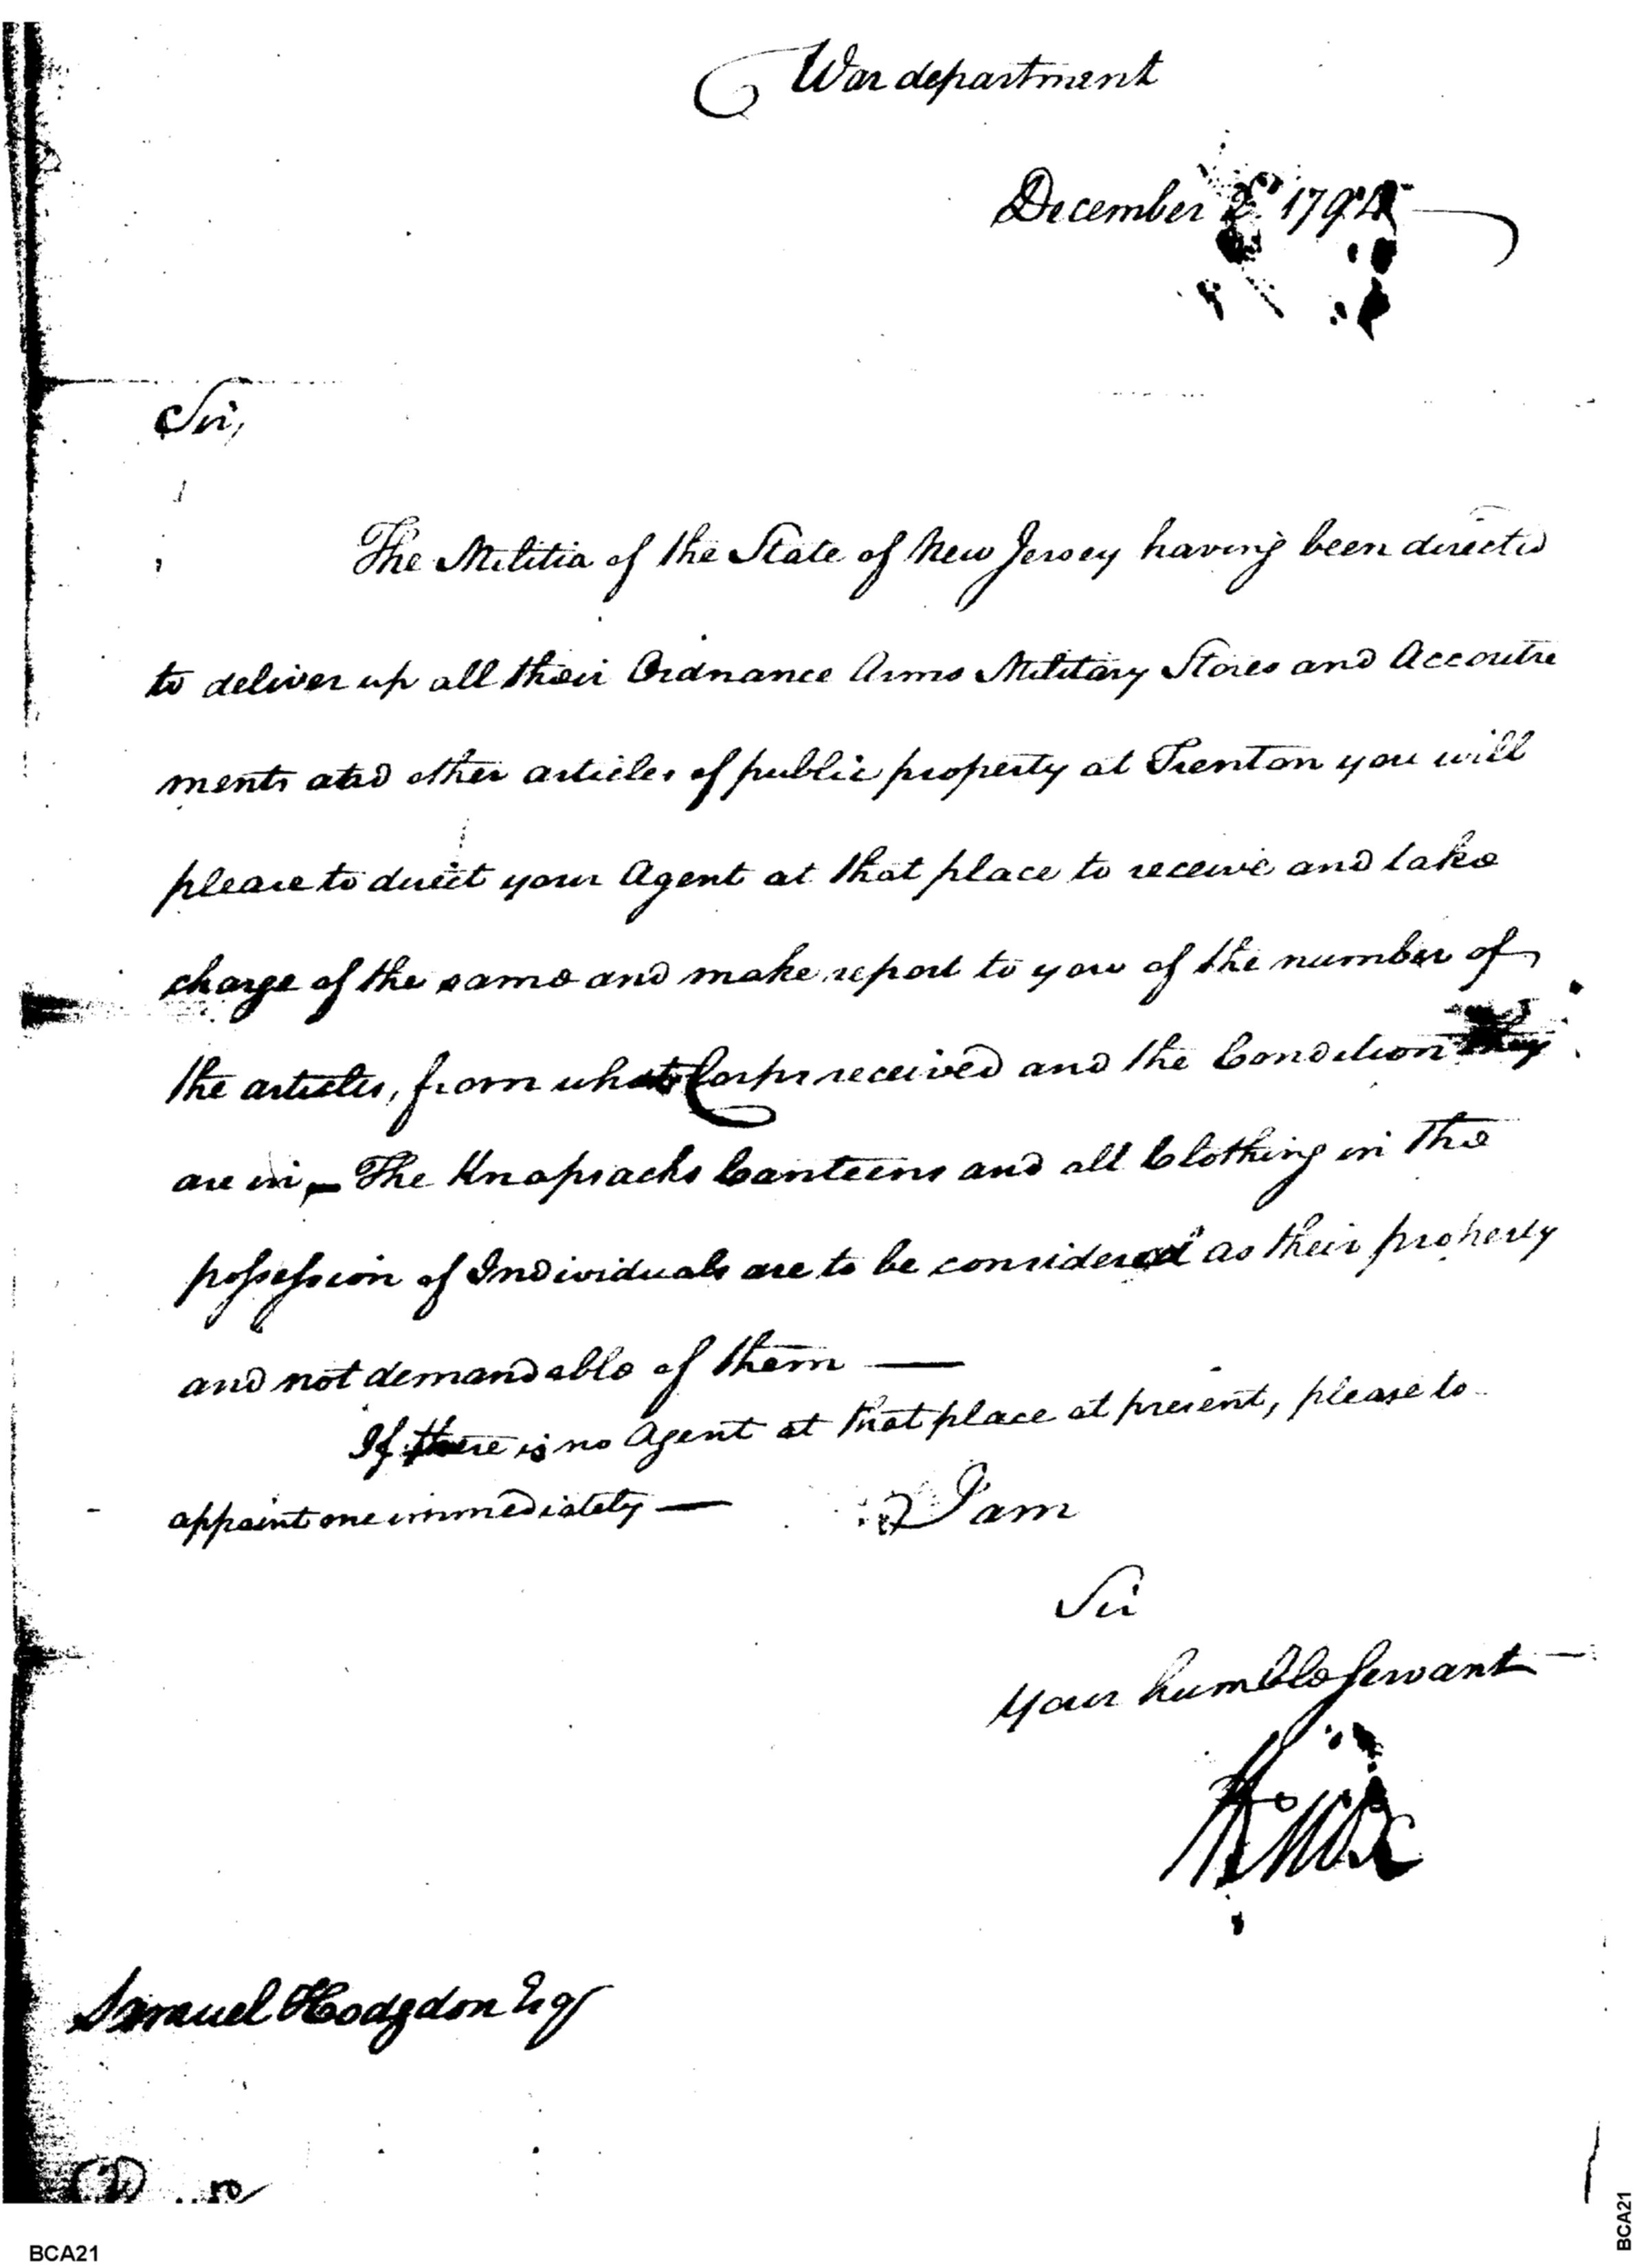 War department
December 2d 1794
Sir,
The Militia of the State of New Jersey having been directed
to deliver up all their Ordnance Arms Military Stores and Accoutre
ments and other articles of public property at Trenton you will
please to direct your Agent at that place to receive and take
charge of the same and make report to you of the number of
the articles, from what Corps received and the Condition they
are in, — The Knapsacks Canteens and all Clothing in the
possession of Individuals are to be considered as their property
and not demandable of them —
If there is no Agent at that place at present, please to
appoint one immediately — I am
Sir
Your humble Servant
HKnox
Samuel Hodgdon Esqr
BCA21
BCA21